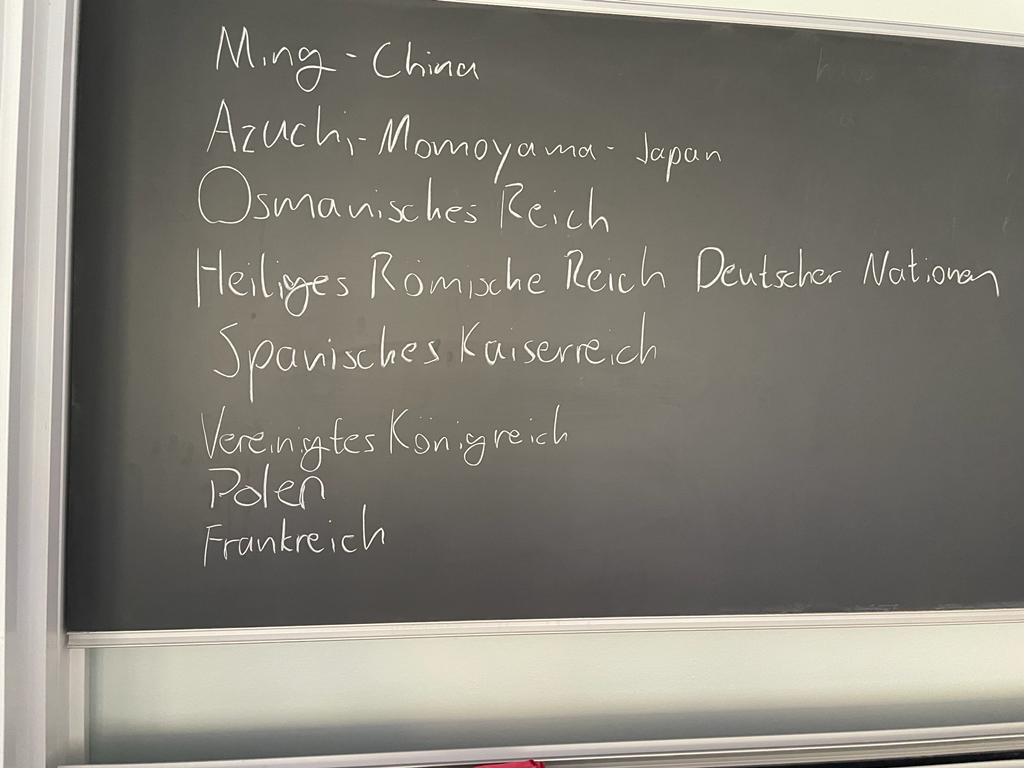 Ming - China
Azuchi-Momoyama - Japan
Osmanisches Reich
Heiliges Römische Reich Deutscher Nationen
Spanisches Kaiserreich
Vereinigtes Königreich
Polen
Frankreich